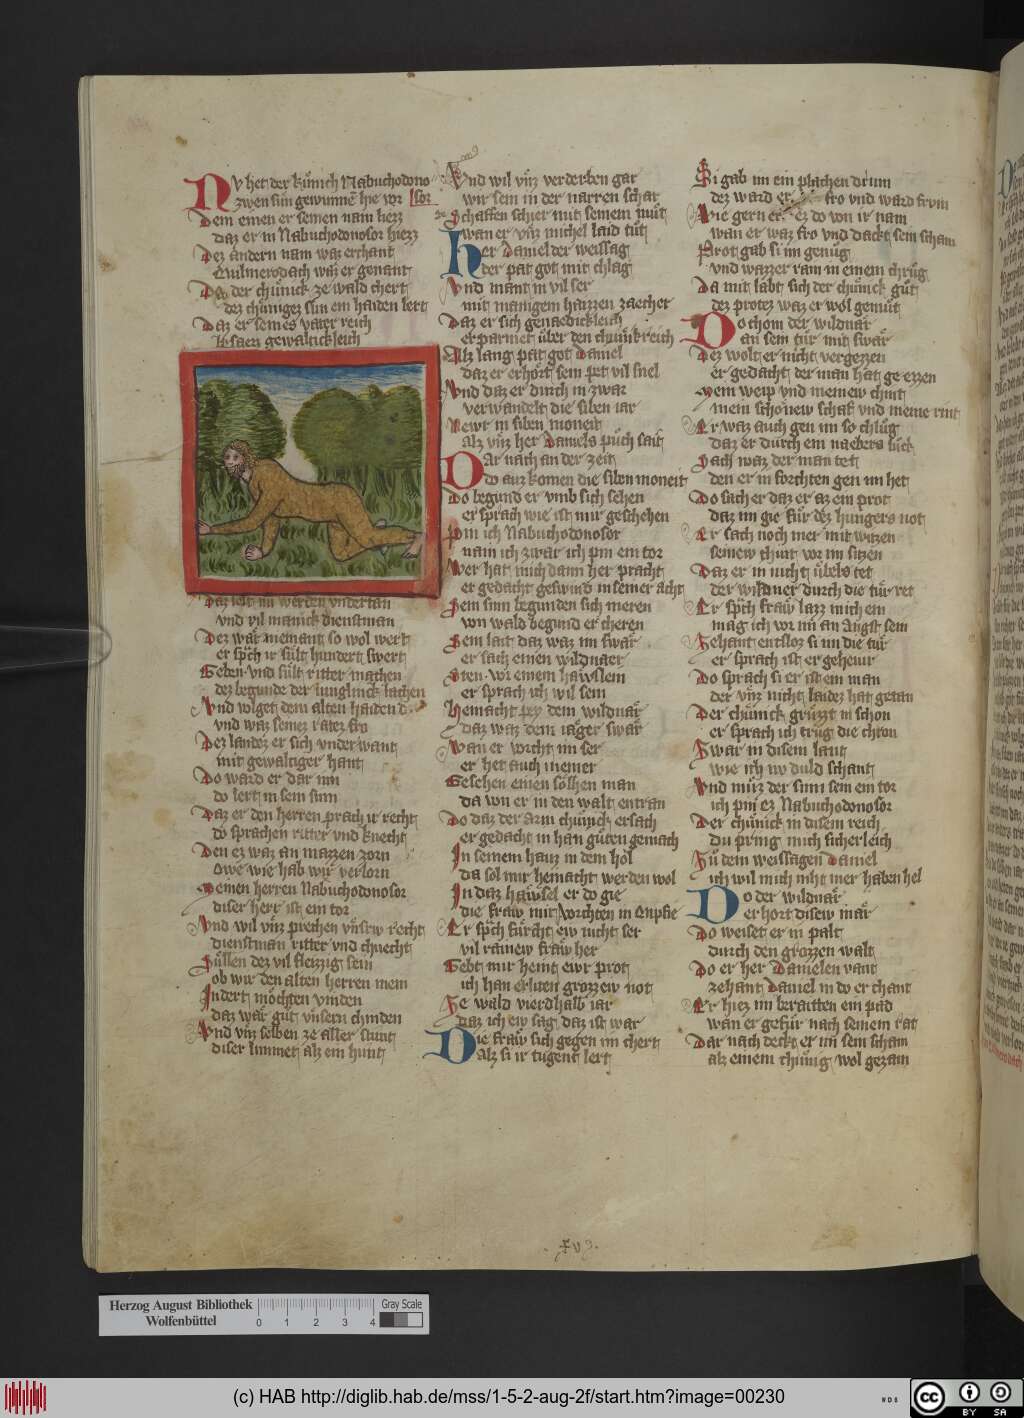 Nv het der kuͤnich Nabuchodono
zwen sun gewunnē hie vor sor
Dem einen er seinen nam herz
daz er in Nabuchodonosor hiezz
Dez andern nam waz erchant
Euilmerodach waz er genant
Do der chuͤnick ze wald chert
dez chuͤnigez sun ein haiden lert
Daz er seines vater reich
besaezz gewaltickleich
Daz ich im werden vndertan
vnd vil manick dienstman
Dez waͤr niemant so wol wert
er spͤch ir suͤlt hundert swert
Geben vnd suͤlt ritter machen
dez begunde der iunglinck lachen
Vnd volget dem alten haiden d
vnd waz seinez ratez fro
Der landez er sich vnderwant
mit gewaltiger hant
Do ward er dar inn
do lert in sein sinn
Daz er den herren prach ir recht
do sprachen ritter vnd knecht
Den ez waz an mazzen zorn
Owe wie hab wir verlorn
Meinen herren Nabuchodonosor
diser herr ist ein tor
Vnd wil vnͤz prechen vnͤsriv recht
dienstman ritter vnd chnecht
Suͤllen dez vil fleizzig sein
ob wir den alten herren mein
Indert moͤchten vinden
daz waͤr guͤt vnͤsern chinden
Vnd vnͤz selben ze aller stunt
diser limmet alz ein hunt
Vnd wil vnͤz verderben gar
wir sein in der narren schar
Schaffen schier mit seinem muͤt
wan er vnͤz michel laid tuͤt
Her Daniel der weissag
der pat got mit chlag
Vnd mant in vil ser
mit manigem haizzen zaecher
Daz er sich genaedickleich
erparmet uͤber den chuͤnkreich
Alz lang pat got Daniel
daz er erhoͤrt sein pet vil snel
Vnd daz er durch in zwar
verwandelt die siben iar
Newr in siben moneit
alz vnͤz her Daniels puͤch sait
Dar nach an der zeit
do auz komen die siben moneit
Do begund er vmb sich sehen
er sprach wie ist mir geschehen
Pin ich Nabuchodonosor
nain ich zwar ich pin ein tor
Wer hat mich dann her pracht
er gedacht geswind in seiner acht
Sein sinn begunden sich meren
von wald begund er cheren
Sein laut daz waz im swaͤr
er sach einen wildnaer
Sten vor einem haͤwslein
er sprach ich wil sein
Heinacht pey dem wildnaͤr
daz waz dem iaͤger swaͤr
Wan er vorcht im ser
er het auch niemer
Gesehen einen soͤlhen man
da von er in den walt entran
Do daz der arm chuͤnick ersach
er gedacht in han guͤten gemach
In seinem hauz in dem hol
da sol mir heinacht werden wol
In daz haͤwsel er do gie
die fraw mit vorchten in enpfie
Er spͤch fuͤrcht ew nicht ser
vil rainew fraw her
Gebt mir heint ewr prot
ich han erliten grozzew not
Ze wald vierdhalb iar
daz ich ew sag daz ist war
Die fraẅ sich gegen im chert
alz si ir tugent lert
Si gab im ein phaichen drinn
dez ward er fro vnd ward frum
Wie gern er ez do von ir nam
wan er waz fro vnd dackt sein scham
Prot gab si im genuͤg
vnd wazzer rain in einem chruͤg
Da mit labt sich der chuͤnick guͤt
dez protez waz er wol gemuͤt
Do chom der wildnaͤr
an sein tuͤr mit swaͤr
Dez wolt er nicht vergezzen
er gedacht der man hat ge ezzen
Mein weip vnd meinew chint
mein schoͤnew schaf vnd meine rint
Er waz auch gen im so chluͤg
daz er durch ein naebers luͤck
Sach waz der man tet
den er in forchten gen im het
Do sach er daz er az ein prot
daz im gie fuͤr dez hungers not
Er sach noch mer mit witzen
seinew chint vor im sitzen
Daz er in nicht uͤbels tet
der wildner durch die tuͤr ret
Er spͤch fraẅ lazz mich ein
mag ich vor im an angst sein
Zehant entsloz si im die tuͤr
er sprach ist er geheur
Do sprach si er ist ein man
der vnͤz nicht laidez hat getan
Der chuͤnick gruͤzzt in schon
er sprach ich truͤg die chron
Zwar in disem lant
wie ich nv duld schant
Vnd muͤz der sinn sein ein tor
ich pin ez Nabuchodonosor
Der chuͤnick in disem reich
du pring mich sicherleich
Zuͤ dem weissagen Daniel
ich wil mich niht mer haben hel
Do der wildnaͤr
erhort disew maͤr
Do weiset er in palt
durch den grozzen walt
Do er her Danielen vant
zehant Daniel in do er chant
Er hiez im beraitten ein pad
wan er gefuͤr nach seinem rat
Dar nach deckt er im sein scham
alz einem chuͤnig wol gezam
Herzog August Bibliothek
Wolfenbüttel
0 1 2 3 4
Gray Scale
(c) HAB http://diglib.hab.de/mss/1-5-2-aug-2f/start.htm?image=00230
WDB
cc
BY SA